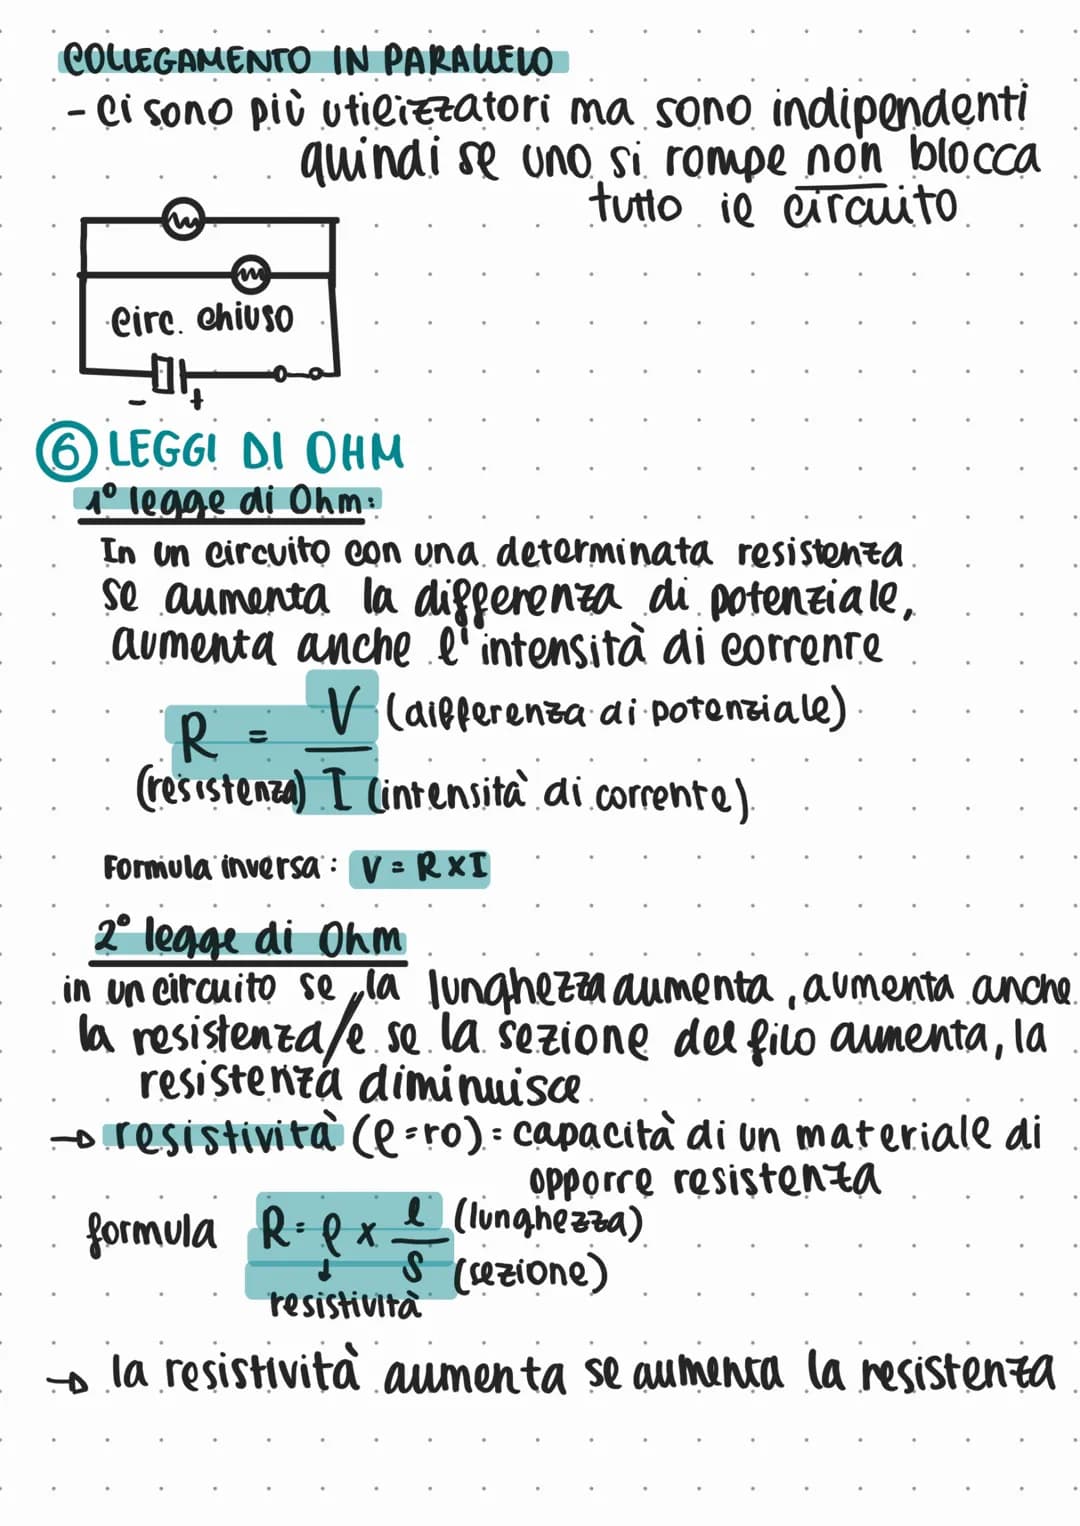 COLLEGAMENTO IN PARALLELO
- Ci sono più utilizzatori ma sono indipendenti
quindi se uno si rompe non blocca
tutto il circuito
circ. chiuso
- +
⑥ LEGGI DI OHM
1° legge di Ohm:
In un circuito con una determinata resistenza
se aumenta la differenza di potenziale,
aumenta anche l'intensità di corrente
R = V (differenza di potenziale)
(resistenza) I (intensità di corrente)
Formula inversa: V = R x I
2° legge di Ohm
in un circuito se la lunghezza aumenta, aumenta anche
la resistenza/e se la sezione del filo aumenta, la
resistenza diminuisce
→ resistività (ρ=ro): capacità di un materiale di
opporre resistenza
formula R = ρ x l (lunghezza)
S (sezione)
↓
resistività
→ la resistività aumenta se aumenta la resistenza